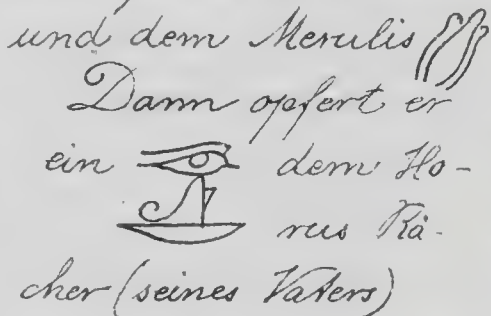 und dem Merulis
Dann opfert er
ein dem Ho-
rus Rä-
cher (seines Vaters)